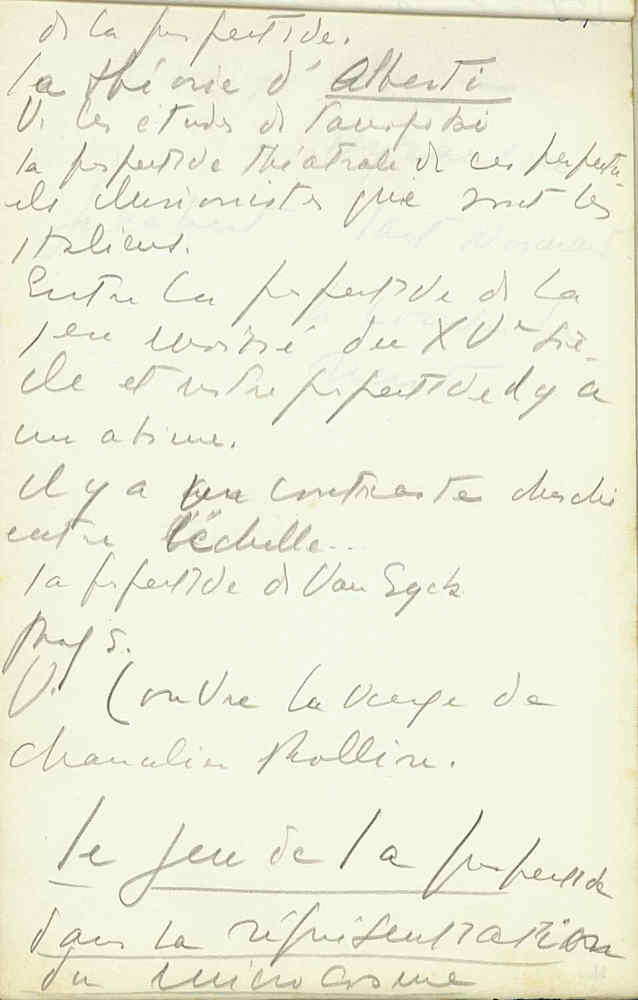 de la perspective.
la théorie d'Alberti
V. les études de Panofski
la perspective théâtrale de ces perpétu-
els illusionistes que sont les
Italiens.
Entre la perspective de la
1ère moitié du XVe siè-
cle et notre perspective il y a
un abime.
il y a un contraste cherché
entre l'échelle...
la perspective de Van Eyck
V. Louvre la vierge de
chancelier Rollin.
le jeu de la perspective
dans la représentation
du microcosme